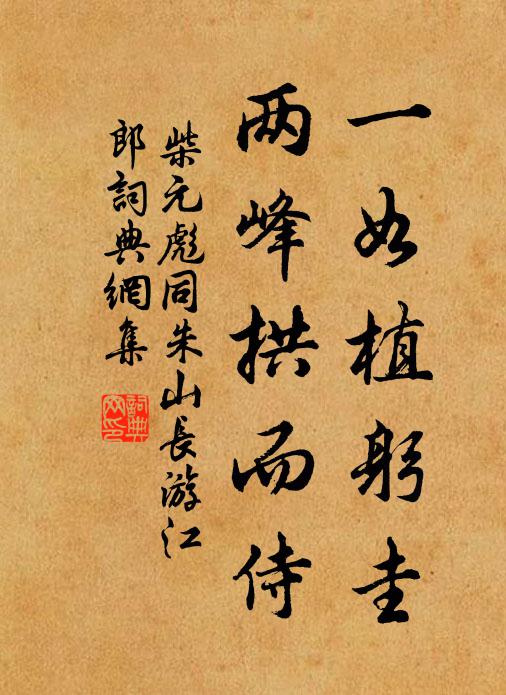 一如植躬圭
两峰拱而侍
柴元彪同朱山長游江
郎詞典網集
詞典
网印